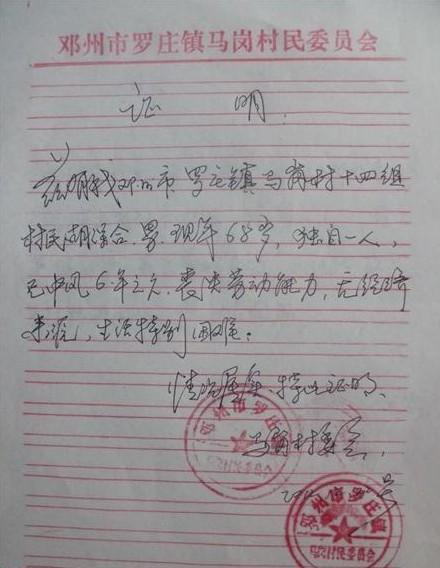 邓州市罗庄镇马岗村民委员会
证 明
兹有我邓州市罗庄镇马岗村十四组
村民胡 合,男,现年68岁,独自一人,
已中风6年之久,丧失劳动能力,无经济
来源,生活特别困难。
情况属实,特此证明。
马岗村委会
邓州市罗庄镇
邓州市罗庄镇